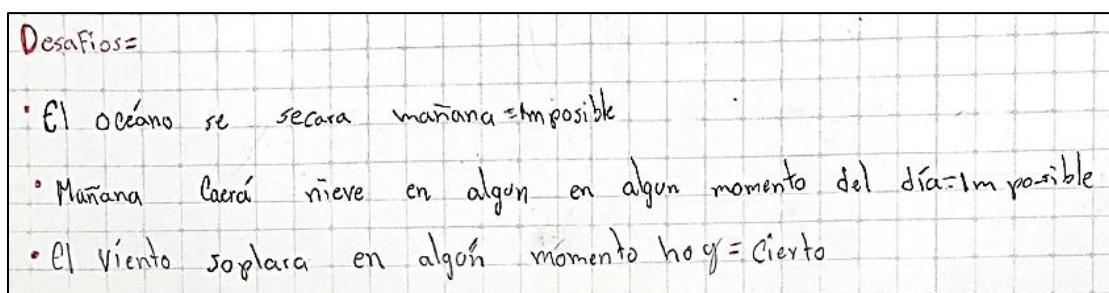 Desafios=
• El océano se secara mañana = Imposible
• Mañana Caerá nieve en algun en algun momento del día = Imposible
• El viento soplara en algún momento hoy = Cierto